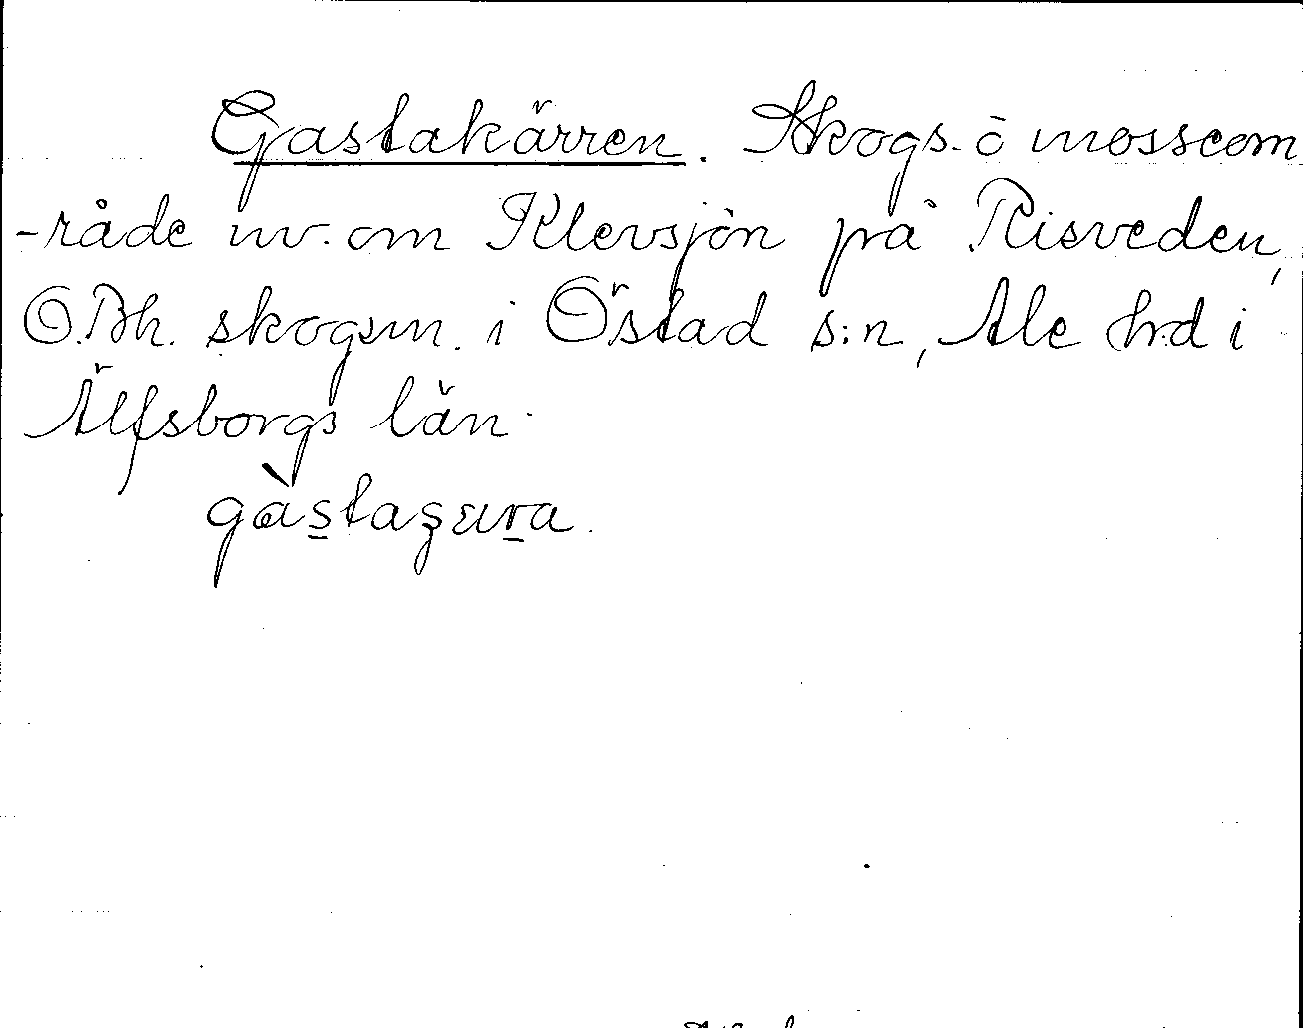 Gastakärren. Skogs- o mosseom
-råde nv. om Klevsjön på Risveden,
O.Bh. skogen. i Östad s:n, Ale hd i
Älfsborgs län.